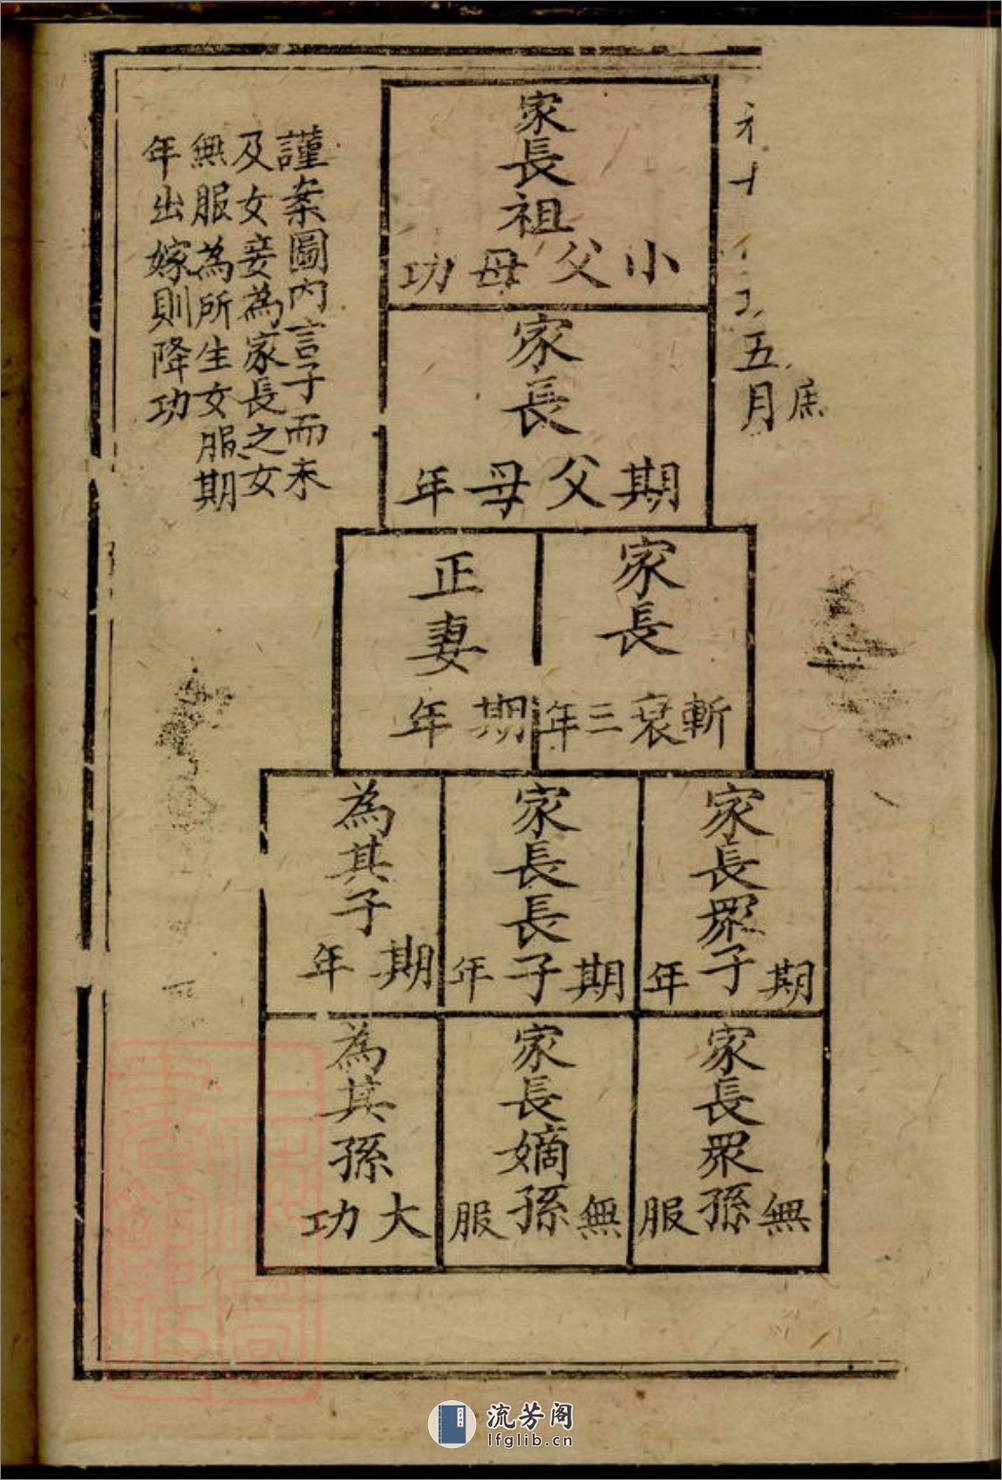 五月
庶
家長祖父母
小功
家長父母
期年
家長
斬衰三年
正妻
期年
家長眾子
期年
家長長子
期年
為其子
期年
家長眾孫
無服
家長嫡孫
無服
為其孫
大功
謹案圖內言子而未
及女妾為家長之女
無服為所生女服期
年出嫁則降功
流芳阁
lfglib.cn